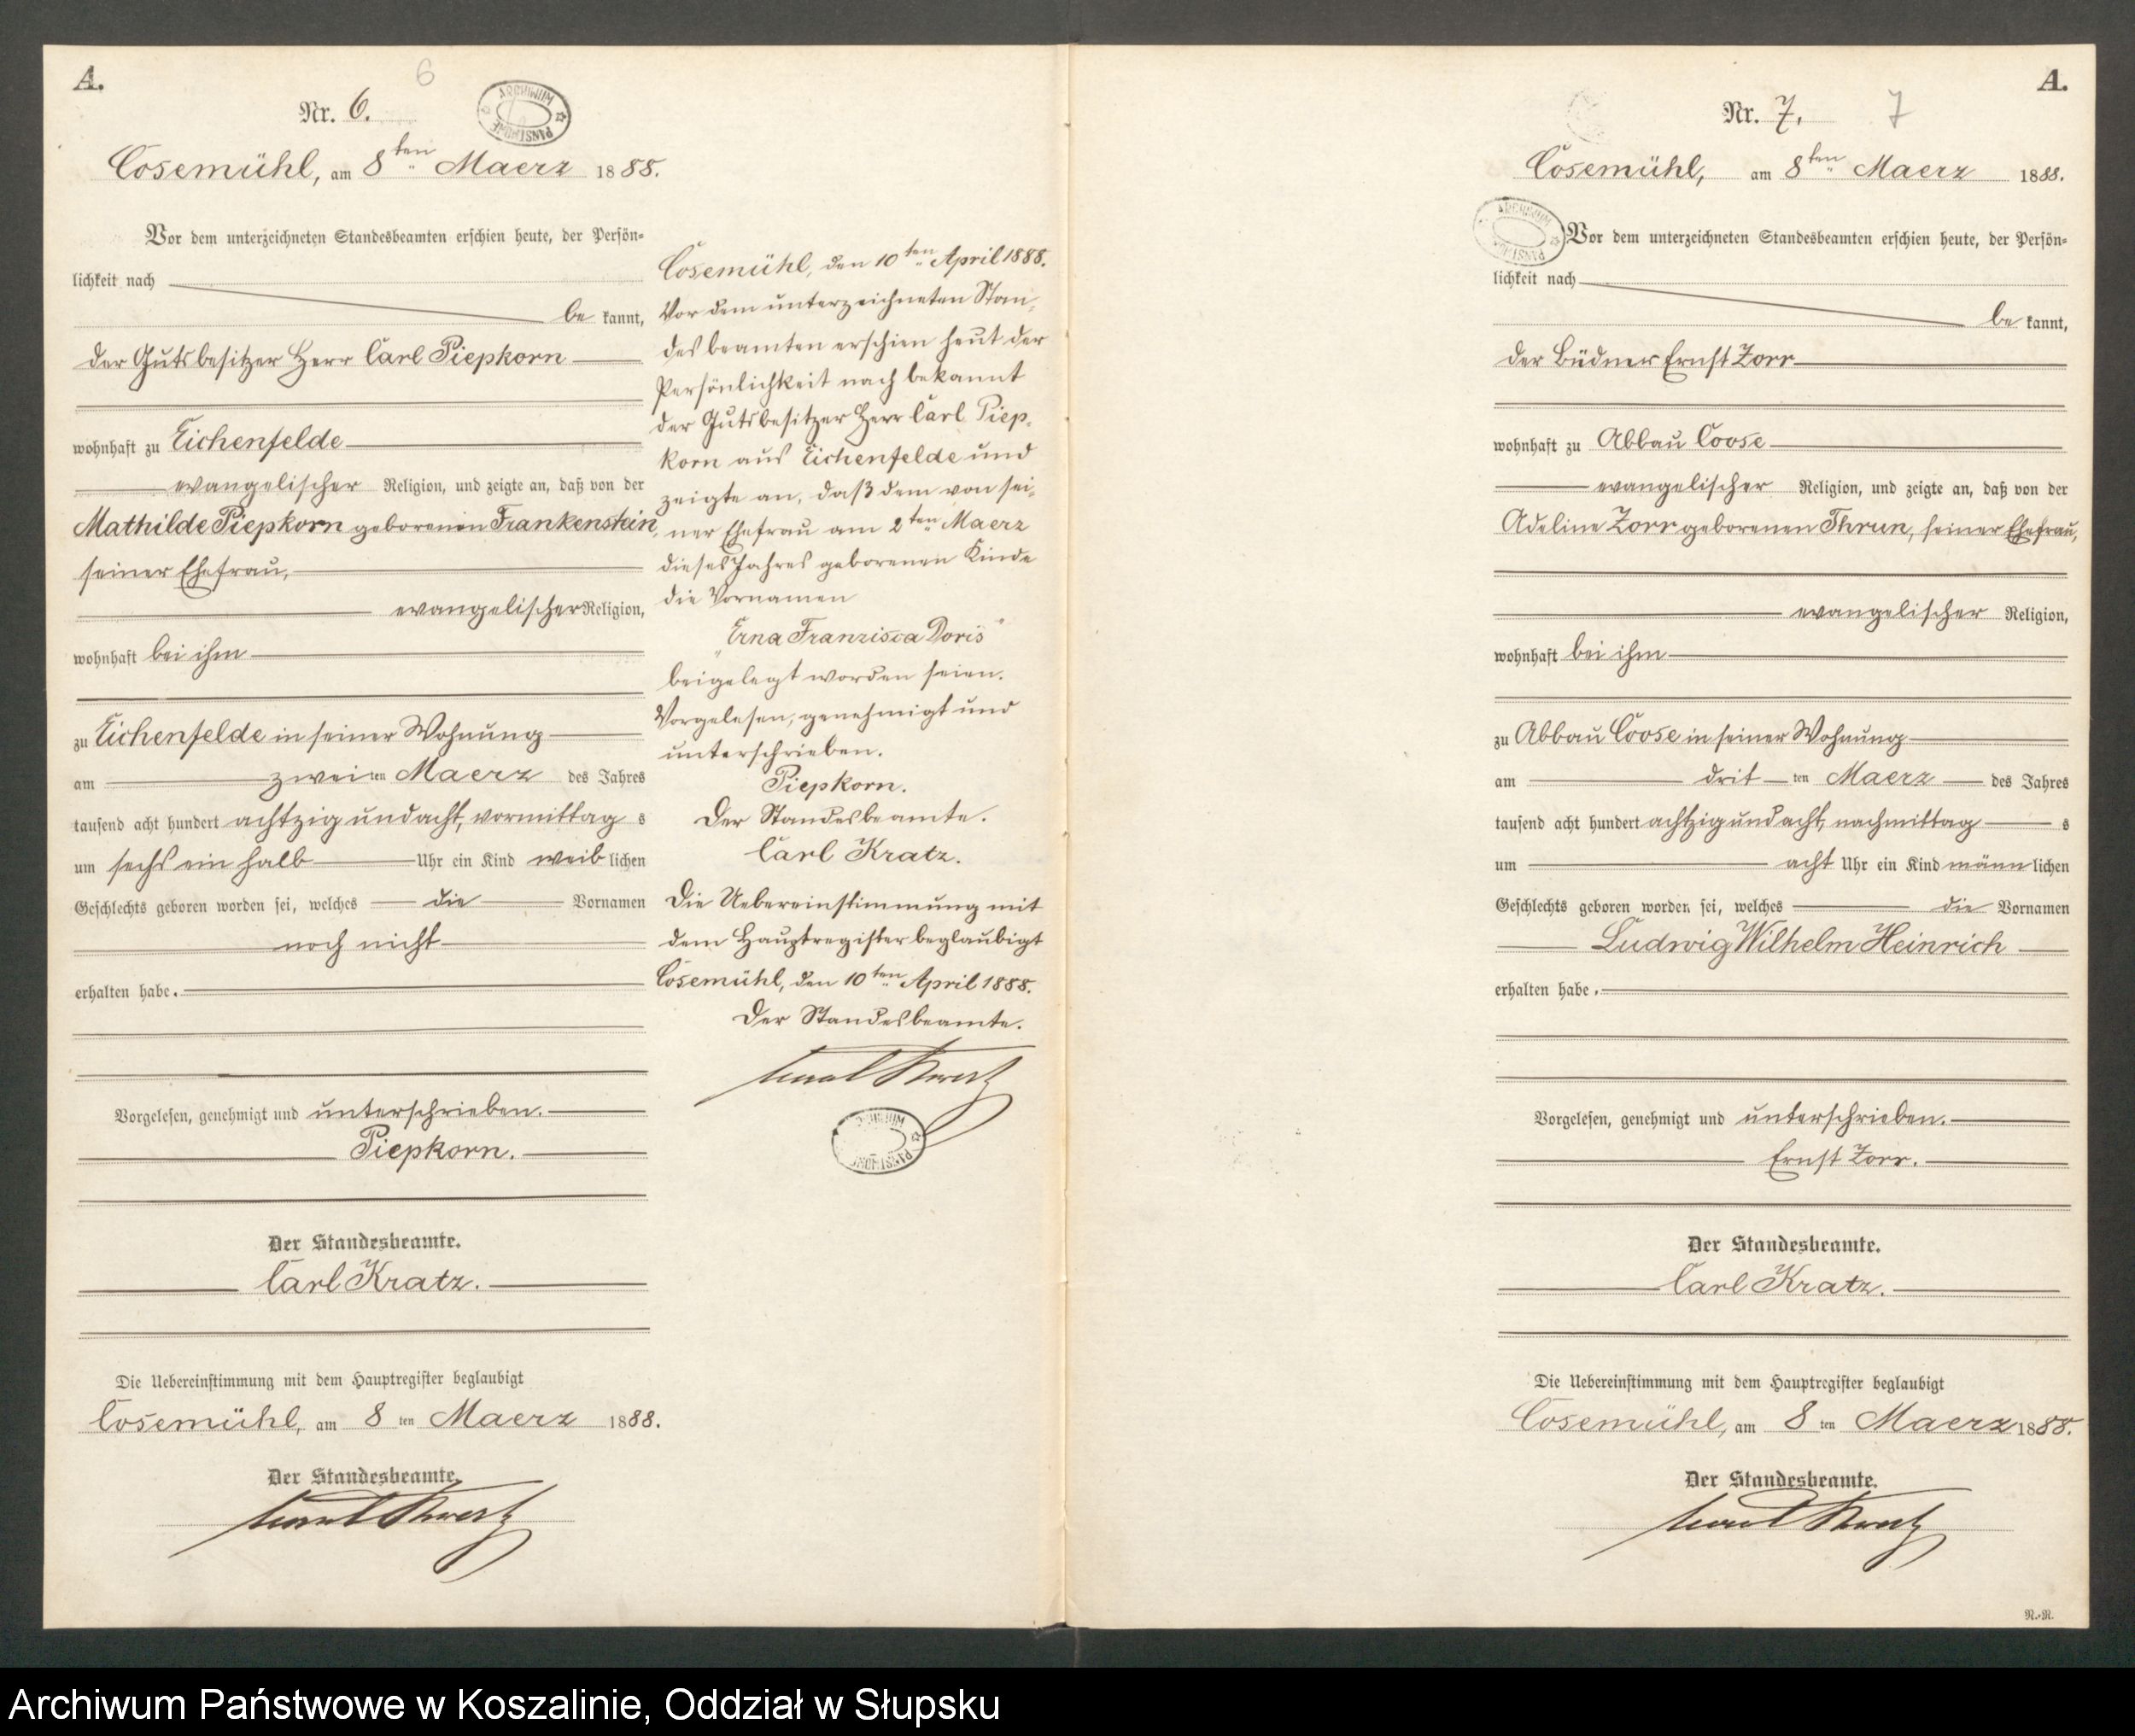 A.
6
Nr. 6.
Cosemühl, am 8ten Maerz 1888.
Vor dem unterzeichneten Standesbeamten erschien heute, der Persön=
lichkeit nach
be kannt,
der Gutsbesitzer Herr Carl Piepkorn
wohnhaft zu Eichenfelde
evangelischer Religion, und zeigte an, daß von der
Mathilde Piepkorn geborenen Frankenstein,
seiner Ehefrau,
evangelischer Religion,
wohnhaft bei ihm
zu Eichenfelde in seiner Wohnung
am zwei ten Maerz des Jahres
tausend acht hundert achtzig und acht, vormittag s
um sechs ein halb Uhr ein Kind weib lichen
Geschlechts geboren worden sei, welches die Vornamen
noch nicht
erhalten habe.
Vorgelesen, genehmigt und unterschrieben.
Piepkorn.
Der Standesbeamte.
Carl Kratz.
Die Uebereinstimmung mit dem Hauptregister beglaubigt
Cosemühl, am 8 ten Maerz 1888.
Der Standesbeamte.
Carl Kratz
ARCHIWUM PAŃSTWOWE
Cosemühl, den 10ten April 1888.
Vor dem unterzeichneten Stan-
desbeamten erschien heut der
Persönlichkeit nach bekannt
der Gutsbesitzer Herr Carl Piep-
korn aus Eichenfelde und
zeigte an, daß dem von sei-
ner Ehefrau am 2ten Maerz
dieses Jahres geborenen Kinde
die Vornamen
„Erna Franzisca Doris"
beigelegt worden seien.
Vorgelesen, genehmigt und
unterschrieben.
Piepkorn.
Der Standesbeamte.
Carl Kratz.
Die Uebereinstimmung mit
dem Hauptregister beglaubigt
Cosemühl, den 10ten April 1888.
Der Standesbeamte.
Carl Kratz
A.
Nr. 7.
7
Cosemühl, am 8ten Maerz 1888.
Vor dem unterzeichneten Standesbeamten erschien heute, der Persön=
lichkeit nach
be kannt,
der Büdner Ernst Zorr
wohnhaft zu Abbau Coose
evangelischer Religion, und zeigte an, daß von der
Adeline Zorr geborenen Thrun, seiner Ehefrau,
evangelischer Religion,
wohnhaft bei ihm
zu Abbau Coose in seiner Wohnung
am drit ten Maerz des Jahres
tausend acht hundert achtzig und acht, nachmittag s
um acht Uhr ein Kind männ lichen
Geschlechts geboren worden sei, welches die Vornamen
Ludwig Wilhelm Heinrich
erhalten habe.
Vorgelesen, genehmigt und unterschrieben.
Ernst Zorr.
Der Standesbeamte.
Carl Kratz.
Die Uebereinstimmung mit dem Hauptregister beglaubigt
Cosemühl, am 8 ten Maerz 1888.
Der Standesbeamte.
Carl Kratz
R.-R.
Archiwum Państwowe w Koszalinie, Oddział w Słupsku